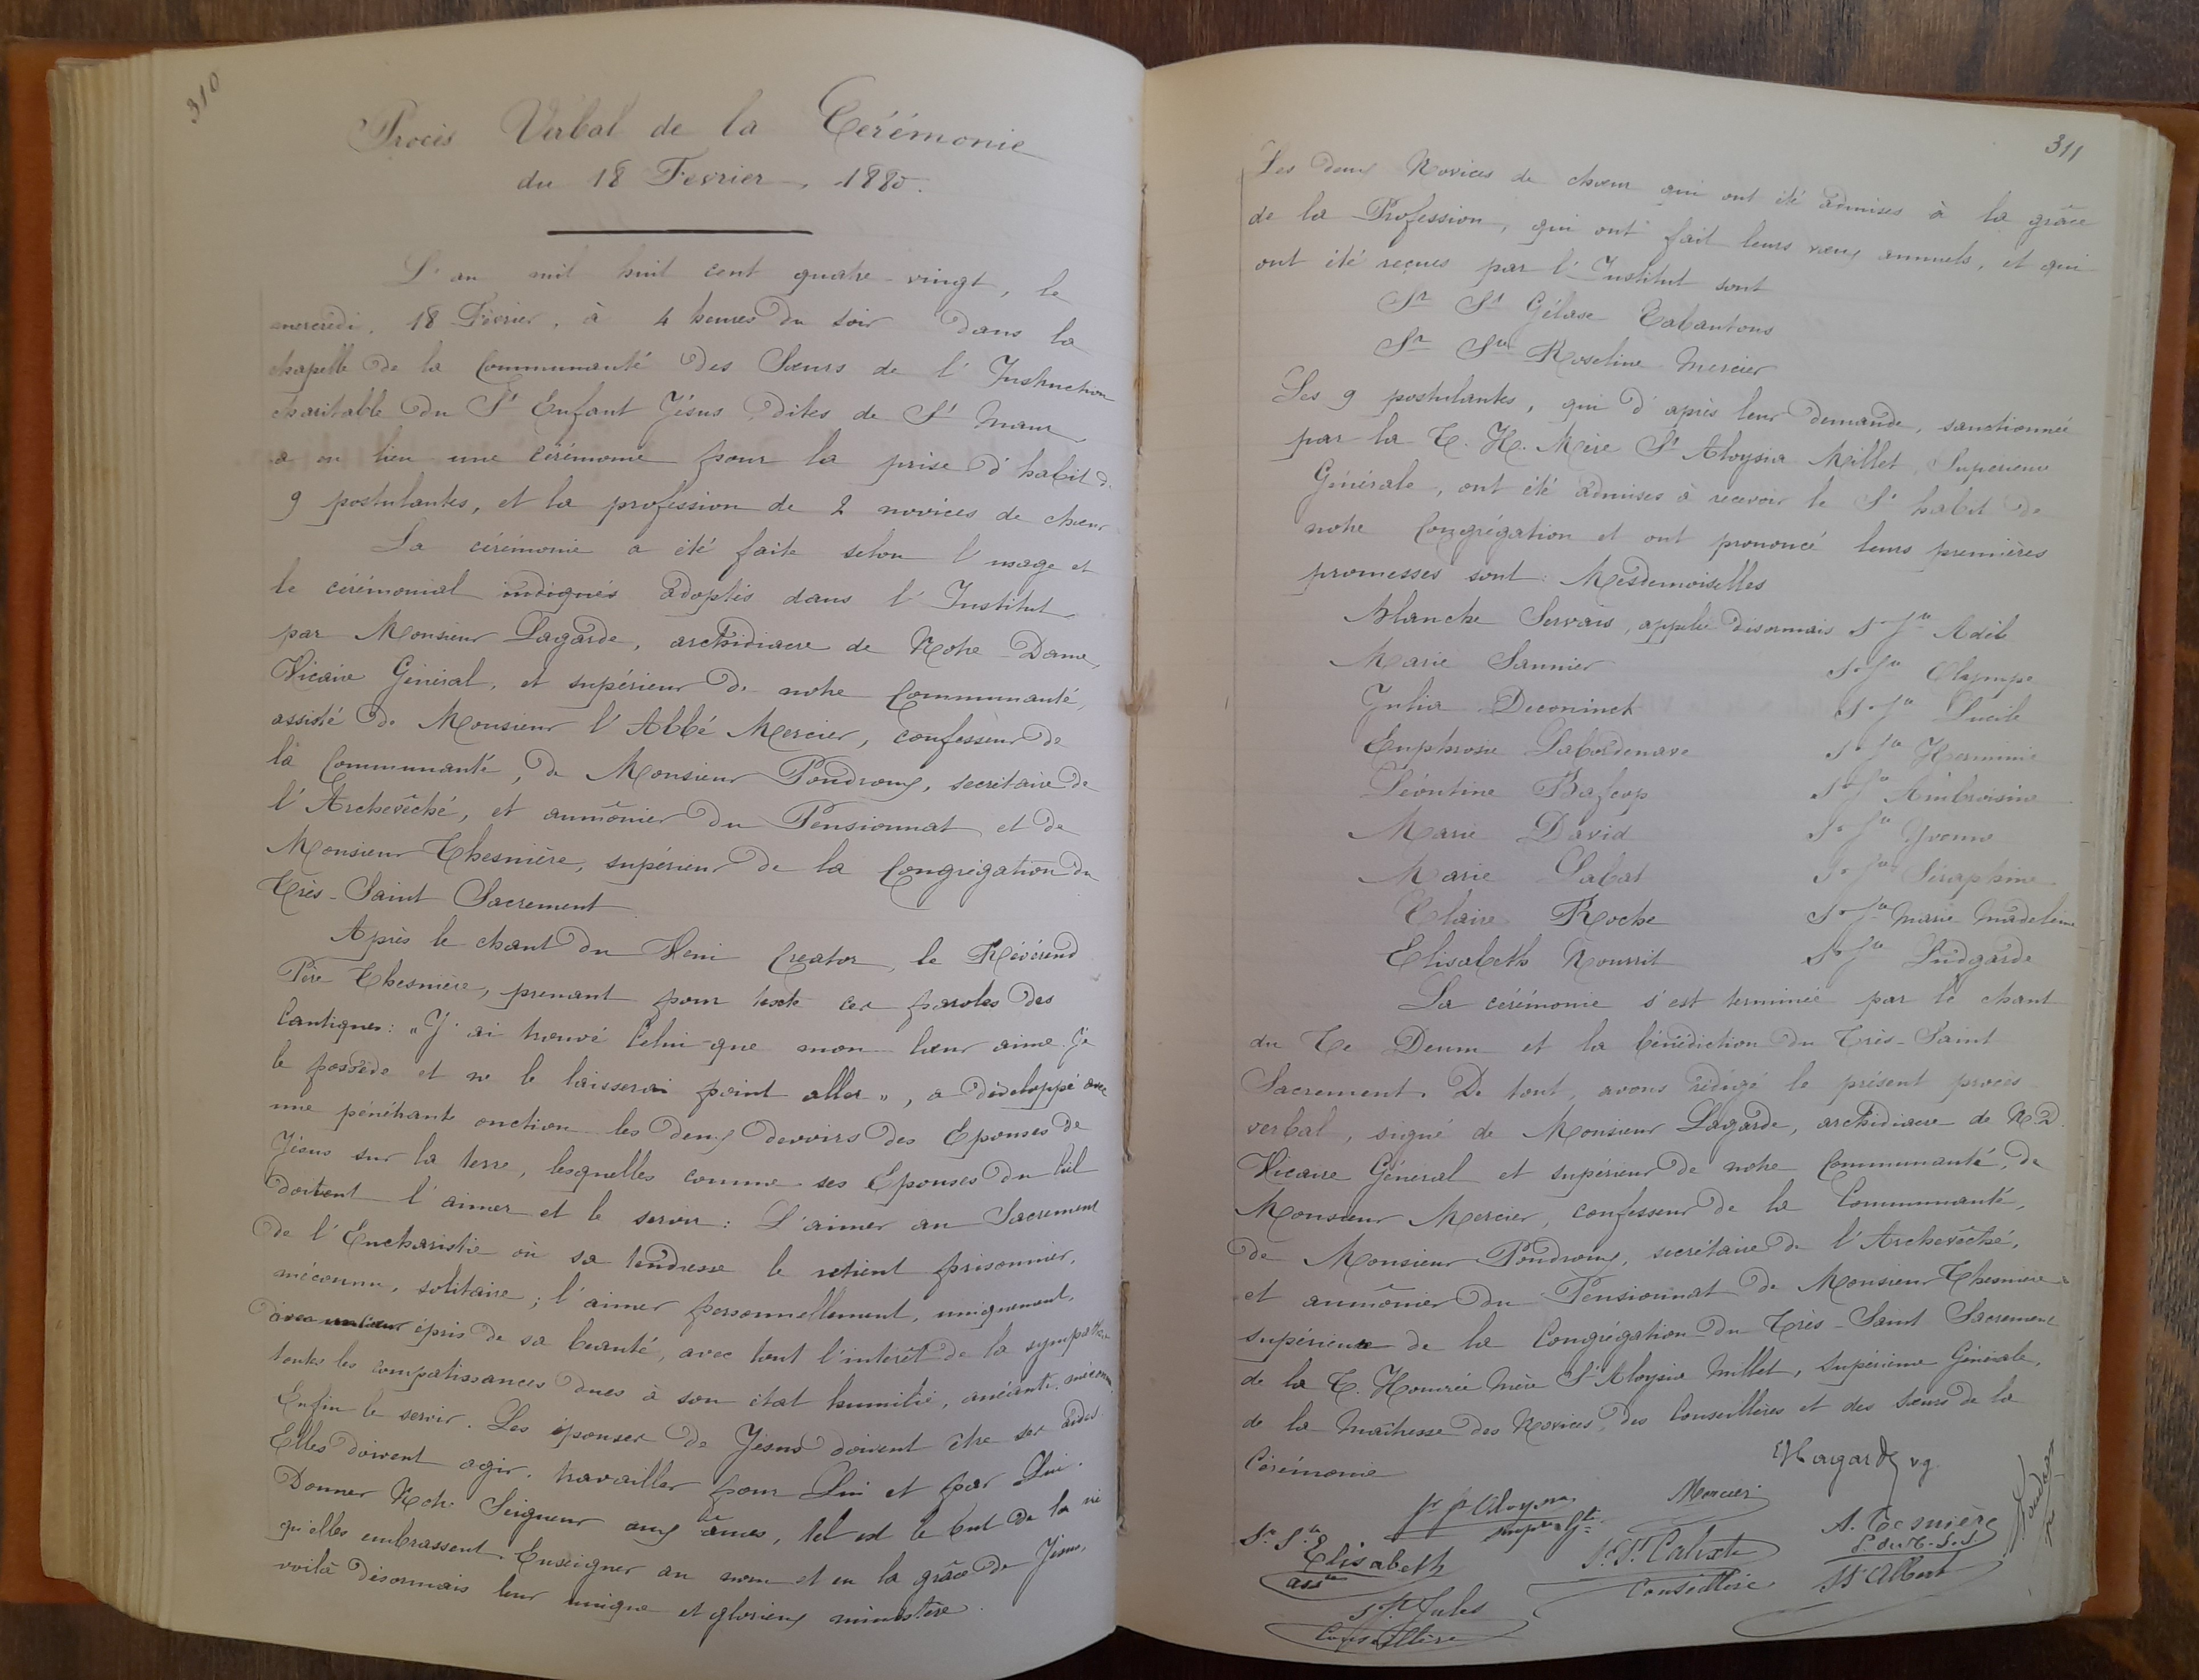 310
Procès Verbal de la Cérémonie
du 18 Fevrier, 1880.
L'an mil huit cent quatre-vingt, le
mercredi, 18 Février, à 4 heures du soir dans la
chapelle de la Communauté des Sœurs de l'Instruction
charitable du St Enfant Jésus, dites de St Maur,
a eu lieu une cérémonie pour la prise d'habit de
9 postulantes, et la profession de 2 novices de chœur
La cérémonie a été faite selon l'usage et
le cérémonial indiqués adoptés dans l'Institut
par Monsieur Lagarde, archidiacre de Notre-Dame,
Vicaire Général, et supérieur de notre Communauté,
assisté de Monsieur l'Abbé Mercier, confesseur de
la Communauté, de Monsieur Poudroux, secrétaire de
l'Archevêché, et aumônier du Pensionnat et de
Monsieur Thesnière, supérieur de la Congrégation du
Très-Saint Sacrement
Après le chant du Veni Creator, le Révérend
Père Thesnière, prenant pour texte ces paroles des
Cantiques: "J'ai trouvé Celui que mon Cœur aime. Je
le possède et ne le laisserai point aller", a développé avec
une pénétrante onction les deux devoirs des Epouses de
Jésus sur la terre, lesquelles comme ses Epouses du Ciel
doivent l'aimer et le servir: L'aimer au Sacrement
de l'Eucharistie où sa tendresse le retient prisonnier,
méconnu, solitaire; l'aimer personnellement, uniquement,
avec un cœur épris de sa beauté, avec tout l'intérêt de la sympathie
toutes les compatissances dues à son état humilié, anéanti, méconnu.
Enfin le servir. Les épouses de Jésus doivent être ses aides
Elles doivent agir, travailler pour Lui et par Lui.
Donner Notre Seigneur aux âmes, tel est le but de la vie
qu'elles embrassent. Enseigner au nom et en la grâce de Jésus,
voilà désormais leur unique et glorieux ministère.
311
Les deux Novices de chœur qui ont été admises à la grâce
de la Profession, qui ont fait leurs vœux annuels, et qui
ont été reçues par l'Institut sont
Sr St Gélase Cabantous
Sr Ste Roseline Mercier
Les 9 postulantes, qui d'après leur demande, sanctionnée
par la T. H. Mère St Aloysia Millet, Supérieure
Générale, ont été admises à recevoir le St habit de
notre Congrégation et ont prononcé leurs premières
promesses sont: Mesdemoiselles
Blanche Servais, appelée désormais Sr Ste Adèle
Marie Saunier Sr Ste Olympe
Julia Deconinck Sr Ste Lucile
Euphrosie Labordenave Sr Ste Hermine
Léontine Bafcop Sr Ste Ambroisine
Marie David Sr Ste Yvonne
Marie Labat Sr Ste Séraphine
Claire Roche Sr Ste Marie Madeleine
Elisabeth Nourrit Sr Ste Ludgarde
La cérémonie s'est terminée par le chant
du Te Deum et la bénédiction du Très-Saint
Sacrement. De tout, avons rédigé le présent procès
verbal, signé de Monsieur Lagarde, archidiacre de N.D.
Vicaire Général et supérieur de notre Communauté, de
Monsieur Mercier, confesseur de la Communauté,
de Monsieur Poudroux, secrétaire de l'Archevêché,
et aumônier du Pensionnat de Monsieur Thesnière
supérieur de la Congrégation du Très-Saint Sacrement
de la T. Honorée Mère St Aloysia Millet, Supérieure Générale,
de la Maîtresse des Novices, des Conseillères et des sœurs de la
Cérémonie
Lagarde v.g.
Mercier
A. Tesnière
S. du T.S.S
Sr Ste Elisabeth
asste
Sr St Calixte
Conseillère
St Albert
S St Jules
Conseillère